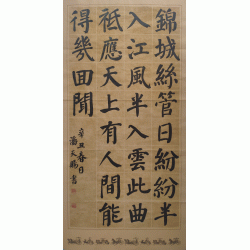 錦城絲管日紛紛半
入江風半入雲此曲
祗應天上有人間能
得幾回聞
辛丑春日
潘天鵬書